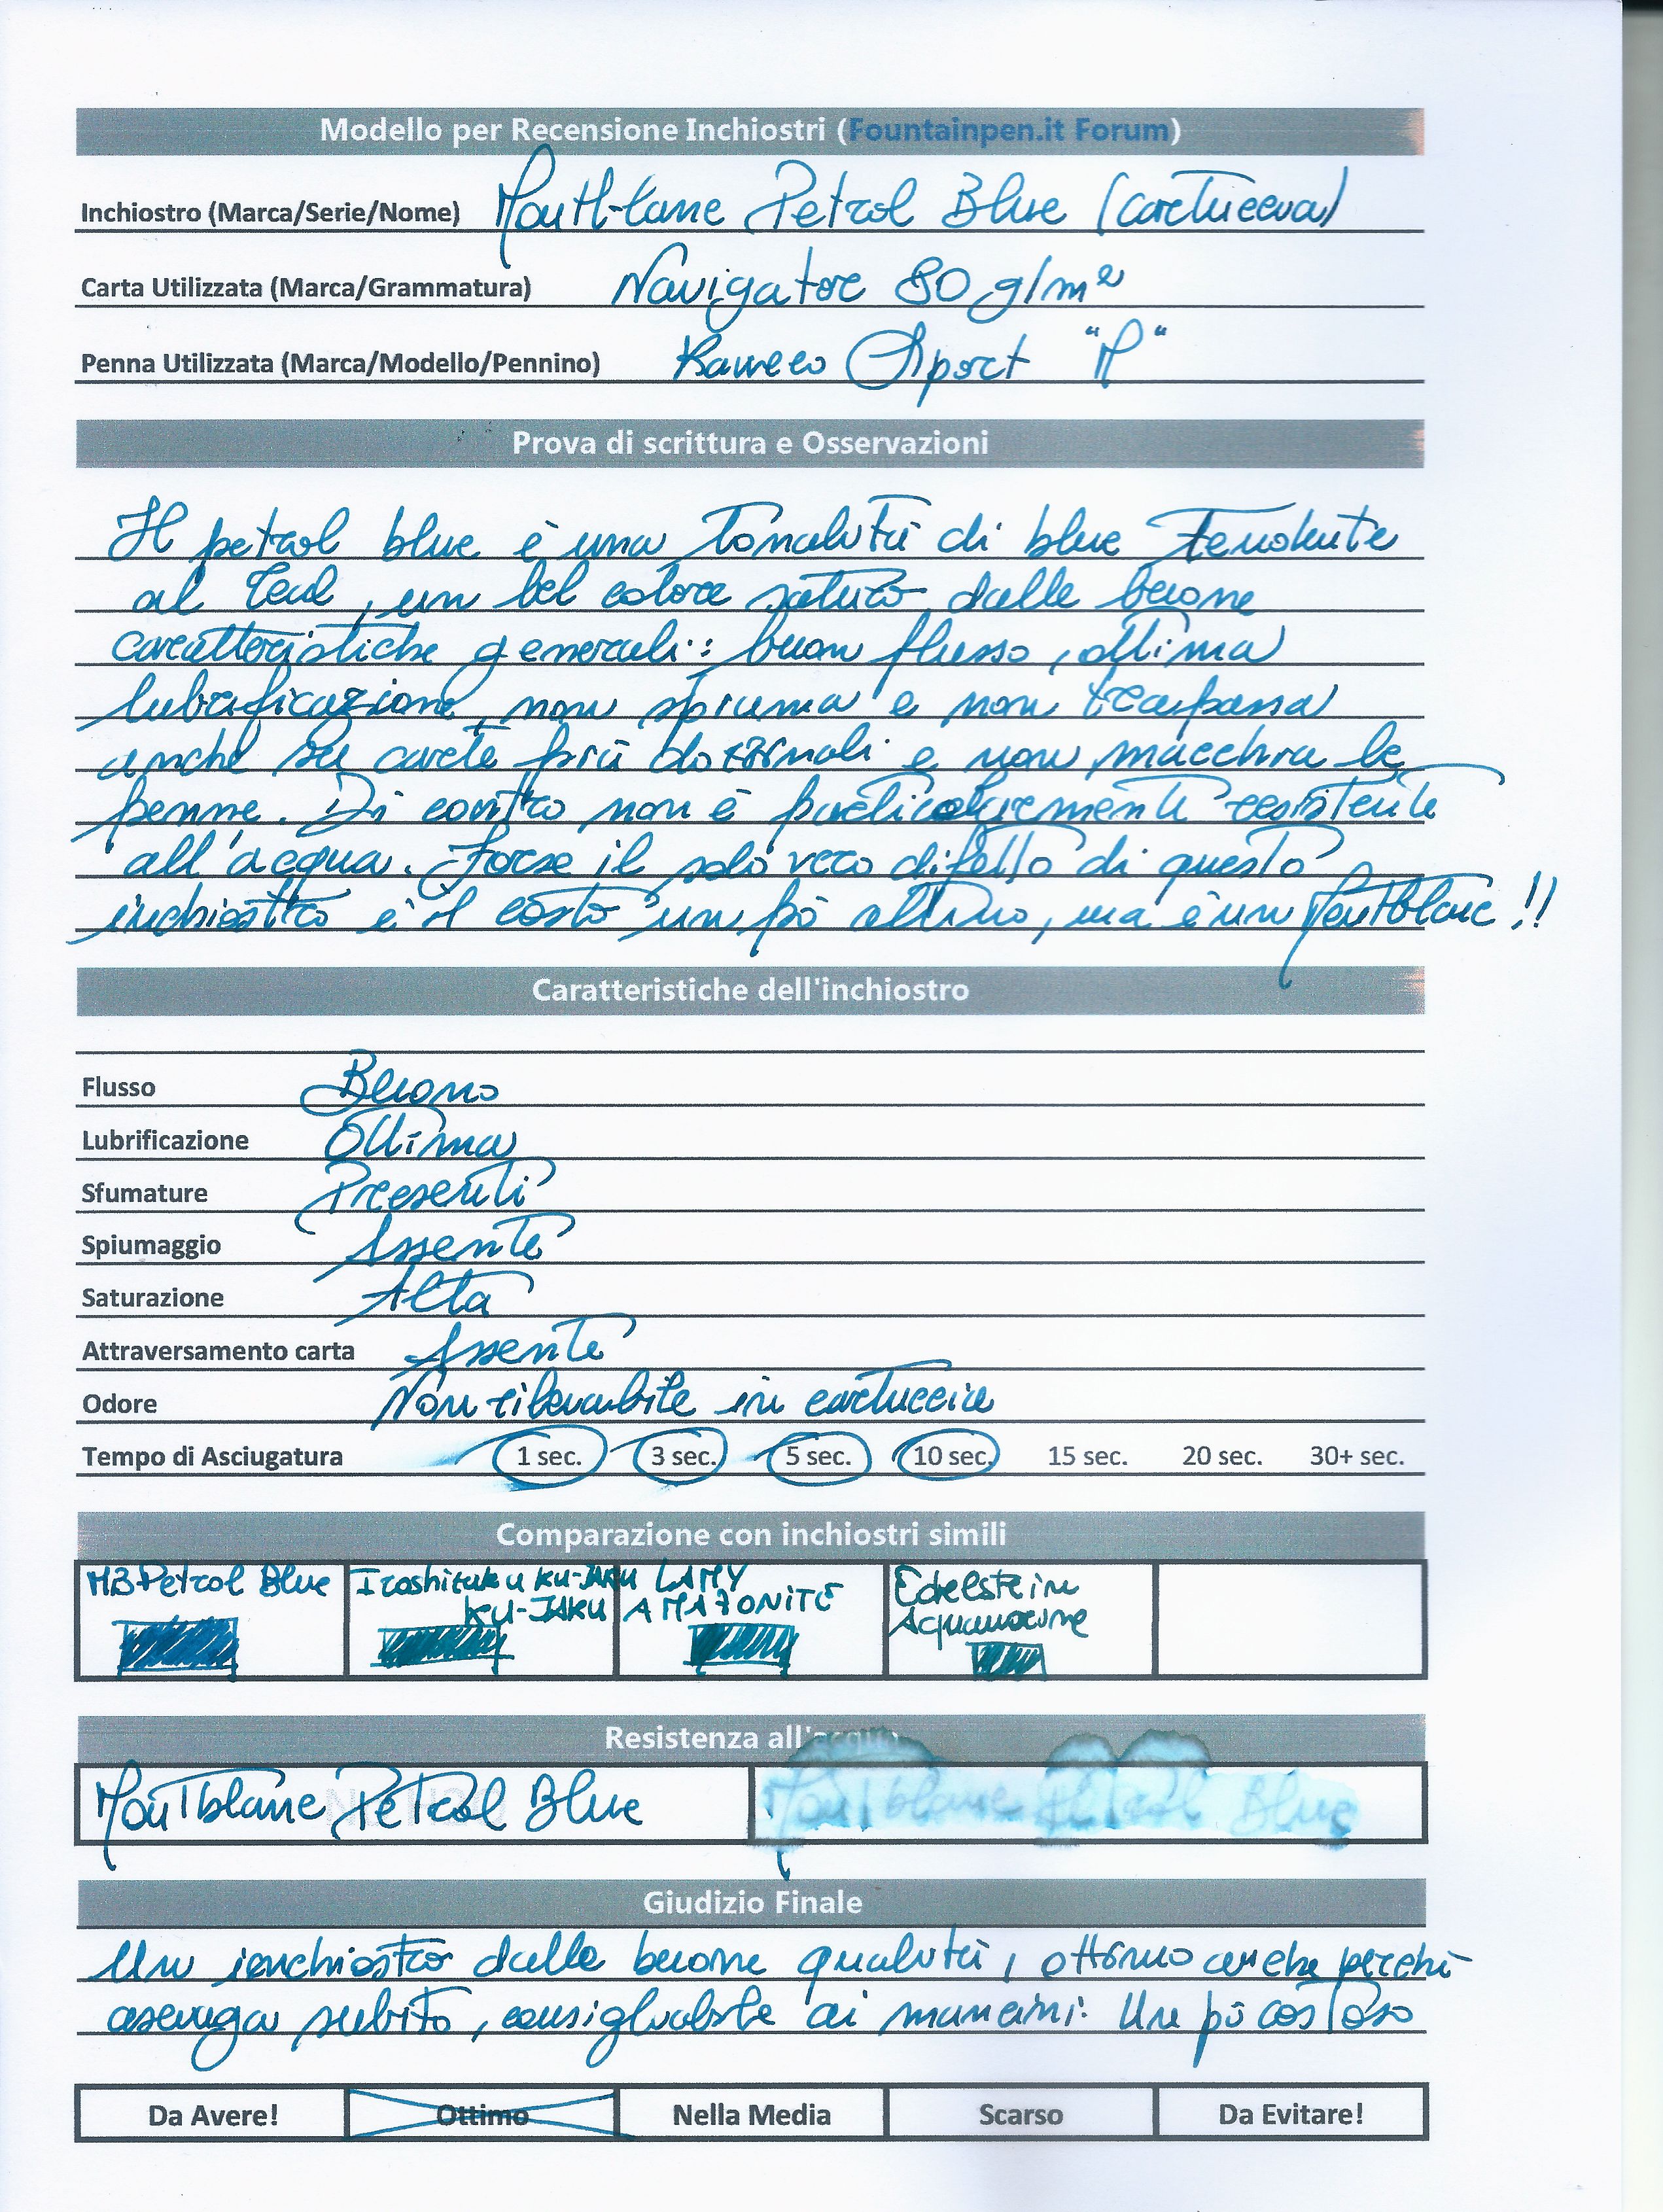 Modello per Recensione Inchiostri (Fountainpen.it Forum)
Inchiostro (Marca/Serie/Nome) Montblanc Petrol Blue (cartuccia)
Carta Utilizzata (Marca/Grammatura) Navigator 80 g/m²
Penna Utilizzata (Marca/Modello/Pennino) Kaweco Sport "M"
Prova di scrittura e Osservazioni
Il petrol blue è una tonalità di blue tendente
al Teal, un bel colore saturo dalle buone
caratteristiche generali: buon flusso, ottima
lubrificazione, non spiuma e non trapassa
anche su carte più dozzinali e non macchia le
penne. Di contro non è particolarmente resistente
all'acqua. Forse il solo vero difetto di questo
inchiostro è il costo un pò altino, ma è un Montblanc!!
Caratteristiche dell'inchiostro
Flusso Buono
Lubrificazione Ottima
Sfumature Presenti
Spiumaggio Assente
Saturazione Alta
Attraversamento carta Assente
Odore Non rilevabile in cartuccia
Tempo di Asciugatura 1 sec. 3 sec. 5 sec. 10 sec. 15 sec. 20 sec. 30+ sec.
Comparazione con inchiostri simili
MB Petrol Blue Iroshizuku KU-JAKU LAMY Edelstein
KU-JAKU AMAZONITE Aquamarine
Resistenza all'acqua
Montblanc Petrol Blue Montblanc Petrol Blue
Giudizio Finale
Un inchiostro dalle buone qualità, ottimo anche perché
asciuga subito, consigliabile ai mancini. Un pò costoso
Da Avere! Ottimo Nella Media Scarso Da Evitare!